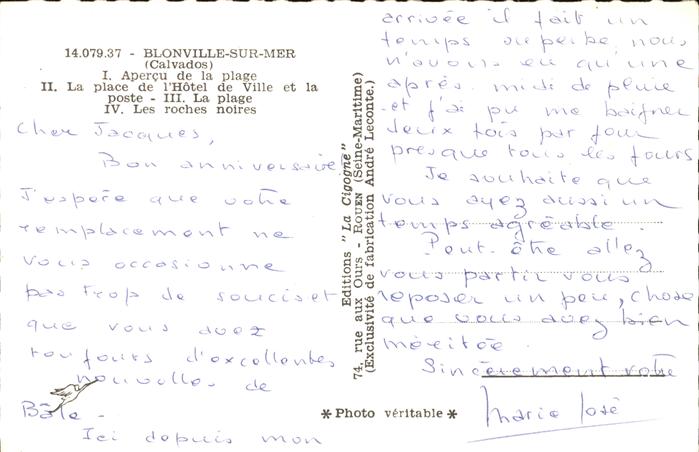 14.079.37 - BLONVILLE-SUR-MER
(Calvados)
I. Aperçu de la plage
II. La place de l'Hôtel de Ville et la
poste - III. La plage
IV. Les roches noires
Cher Jacques,
Bon anniversaire
J'espère que votre
remplacement ne
vous occasionne
pas trop de soucis et
que vous avez
toujours d'excellentes
nouvelles de
Bâle -
Ici depuis mon
arrivée il fait un
temps superbe, nous
n'avons eu qu'une
après-midi de pluie
et j'ai pu me baigner
deux fois par jour
presque tous les jours
Je souhaite que
vous ayez aussi un
temps agréable.
Peut-être allez
vous partir vous
reposer un peu, chose
que vous avez bien
méritée.
Sincèrement votre
Marie José
Editions "La Cigogne"
74, rue aux Ours - ROUEN (Seine-Maritime)
(Exclusivité de fabrication André Leconte.)
* Photo véritable *